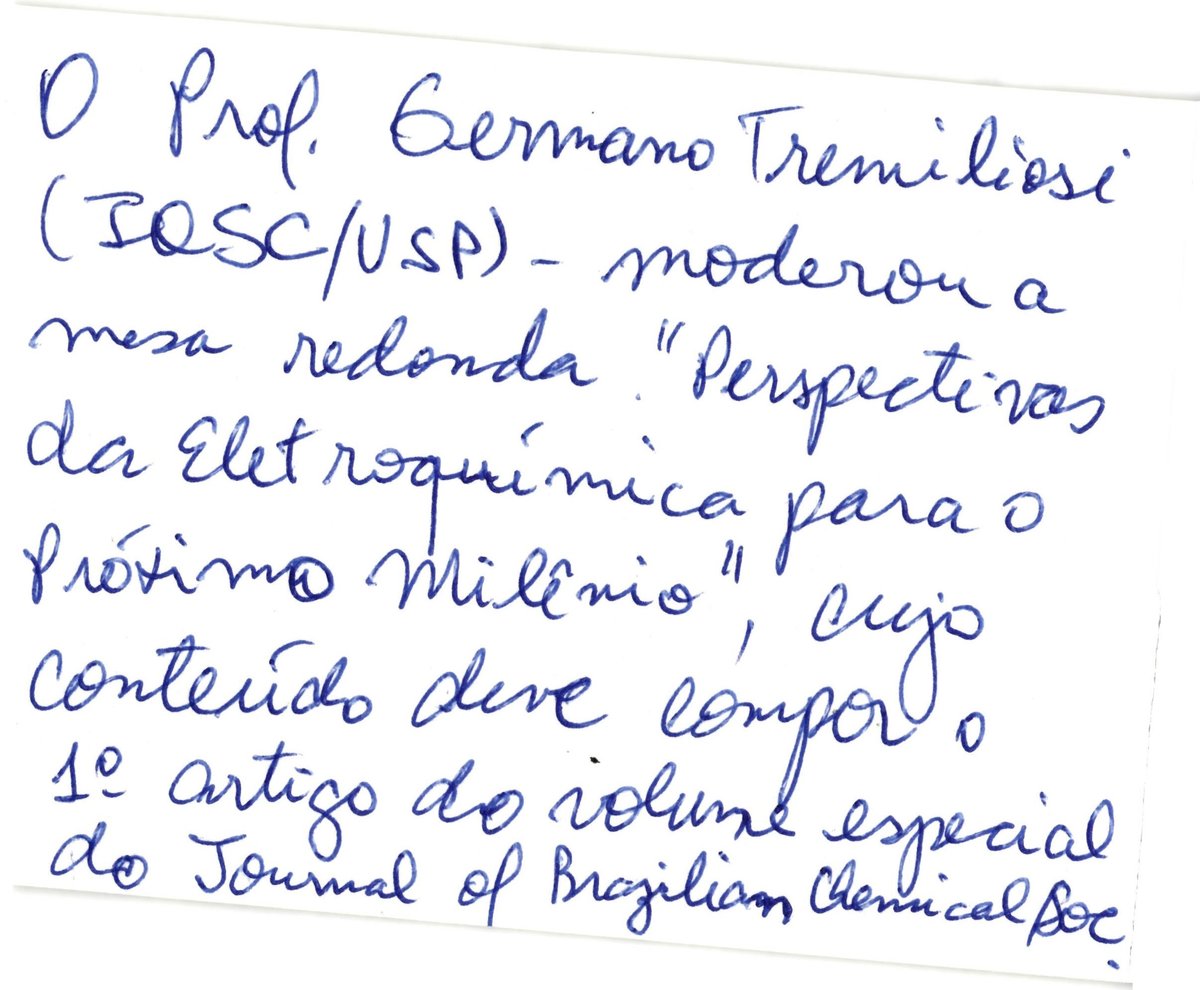 O Prof. Germano Tremiliosi
(IQSC/USP) - moderou a
mesa redonda "Perspectivas
da Eletroquímica para o
Próximo Milênio", cujo
conteúdo deve compor o
1º artigo do volume especial
do Journal of Brazilian Chemical Soc.